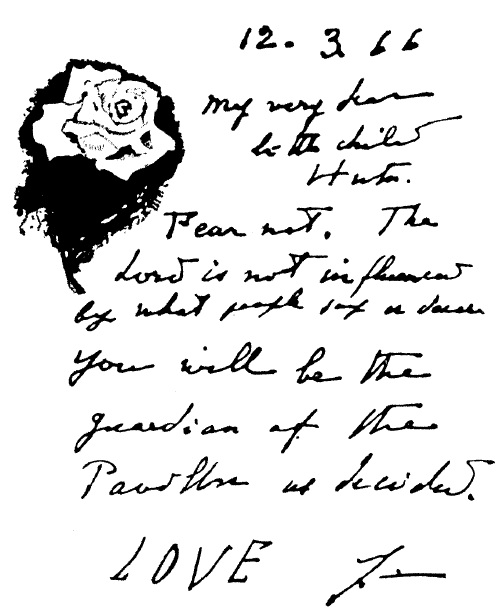 12. 3. 66
My very dear
little child
Huta.
Fear not. The
Lord is not influenced
by what people say or
You will be the
guardian of the
Pavillon as decided.
LOVE